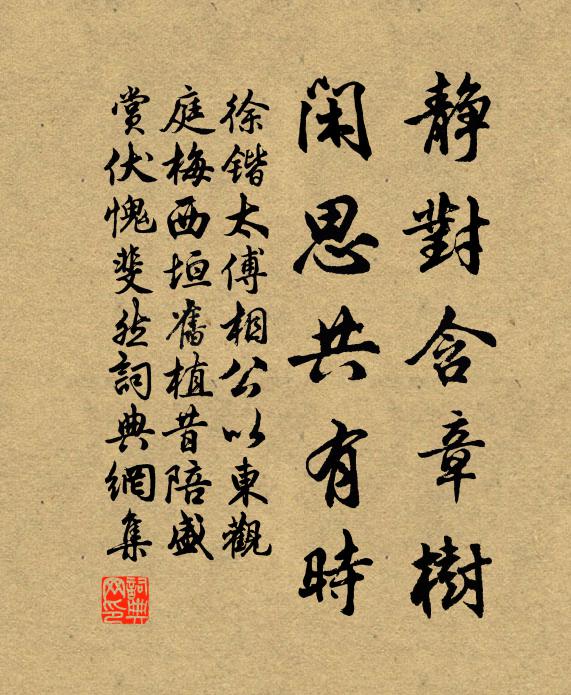 静對含章樹
閑思共有時
徐鍇太傅相公以東觀
庭梅西垣舊植昔陪盛
賞伏愧斐然詞典網集
詞典网印